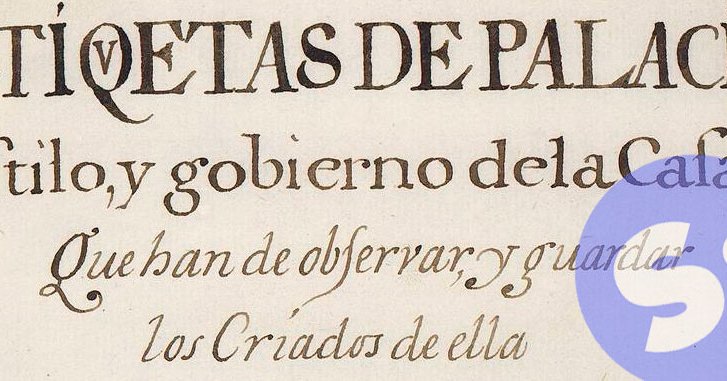 TÍQVETAS DE PALAC
ſtilo, y gobierno de la Caſa
Que han de obſervar, y guardar
los Criados de ella